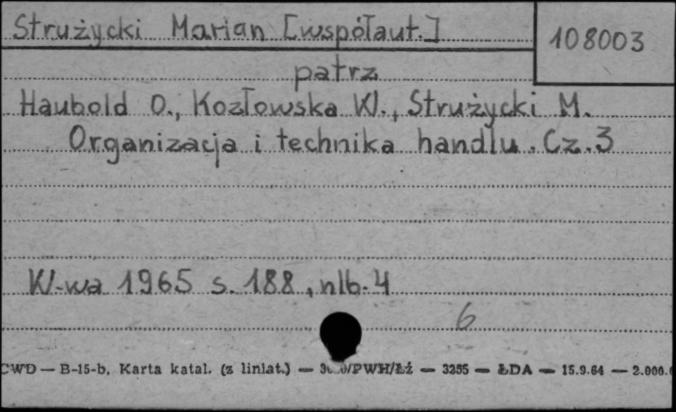 Strużycki Marian [współaut.]
108003
patrz
Haubold O., Kozłowska W., Strużycki M.
Organizacja i technika handlu. Cz.3
W-wa 1965 s. 188, nlb. 4
6
CWD — B-15-b. Karta katal. (z liniat.) — /PWH/Łź — 3255 — ŁDA — 15.9.64 — 2.000.